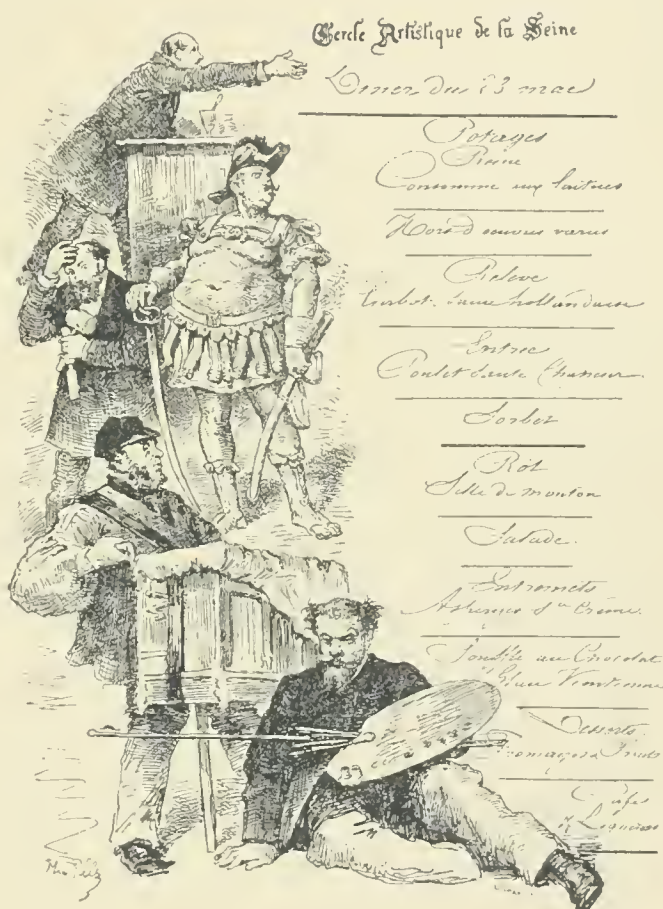 Cercle Artistique de la Seine
Diner du 23 mai
Potages
Reine
Consommé aux laitues
Hors d'oeuvres variés
Relevé
Turbot sauce hollandaise
Entrée
Poulet sauté Chasseur
Sorbet
Rôt
Selle de mouton
Salade.
Entremets
Asperges Sce Crème.
au Chocolat
Glace
Desserts
Fromages & Fruits
Cafés
& Liqueurs